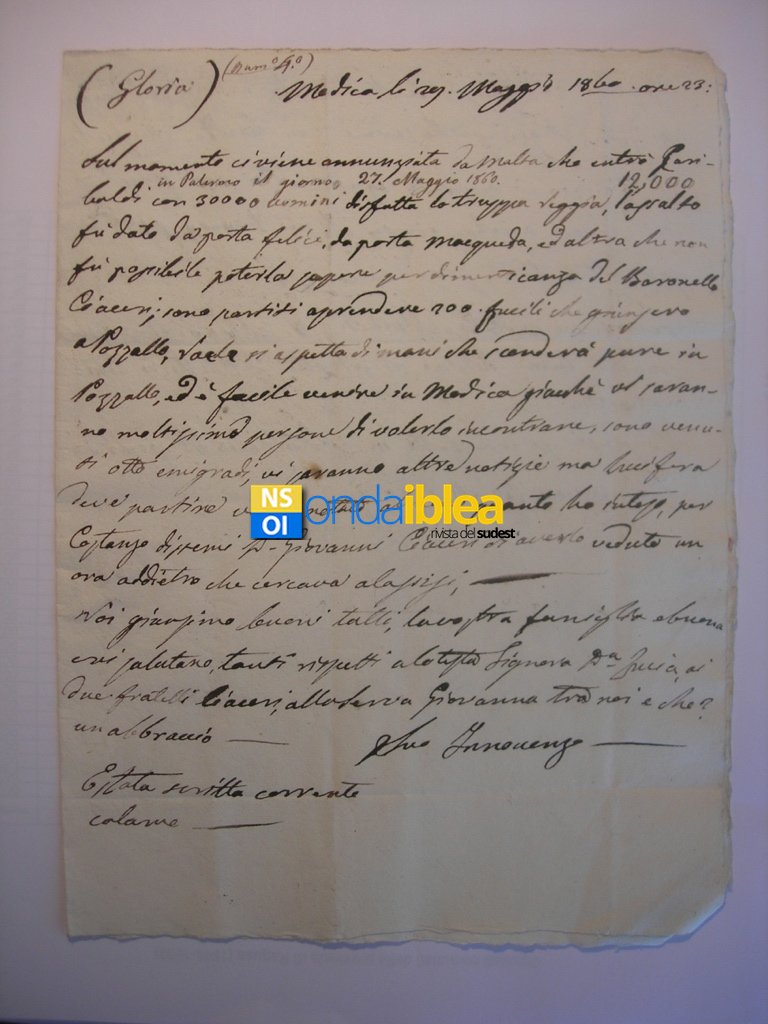 (Gloria) (Num.º 4.º)
Modica li 29. Maggio 1860. ore 23:
Sul momento ci viene annunziata da Malta che entrò Gari-
in Palermo il giorno 27. Maggio 1860. 12,000
baldi con 30000 uomini disfatta la truppa reggia, l'assalto
fù dato da porta felici, da porta Macqueda, ed altra che non
fù possibile poterla sapere per dimenticanza del Baronello
Ciaceri; sono partiti a prendere 200. fucili che giunsero
a Pozzallo, si aspetta dimani che scenderà pure in
Pozzallo, ed è facile venire in Modica giacchè vi saran-
no moltissime persone di volerlo incontrare, sono venu-
ti otto emigradi, vi saranno altre notizie ma
deve partire quanto ho inteso, per
Costanzo D. Giovanni Ciaceri di averlo veduto un
ora addietro che cercava
Noi giussimo buoni tutti, la vostra famiglia e buona
e vi salutano, tanti rispetti a Signora D.a ai
due fratelli Ciaceri, alla serva Giovanna tra noi e che?
un abbraccio —
Suo Innocenzo —
E stata scritta corrente
calamo —
NS
OI
ondaiblea
rivista del sudest